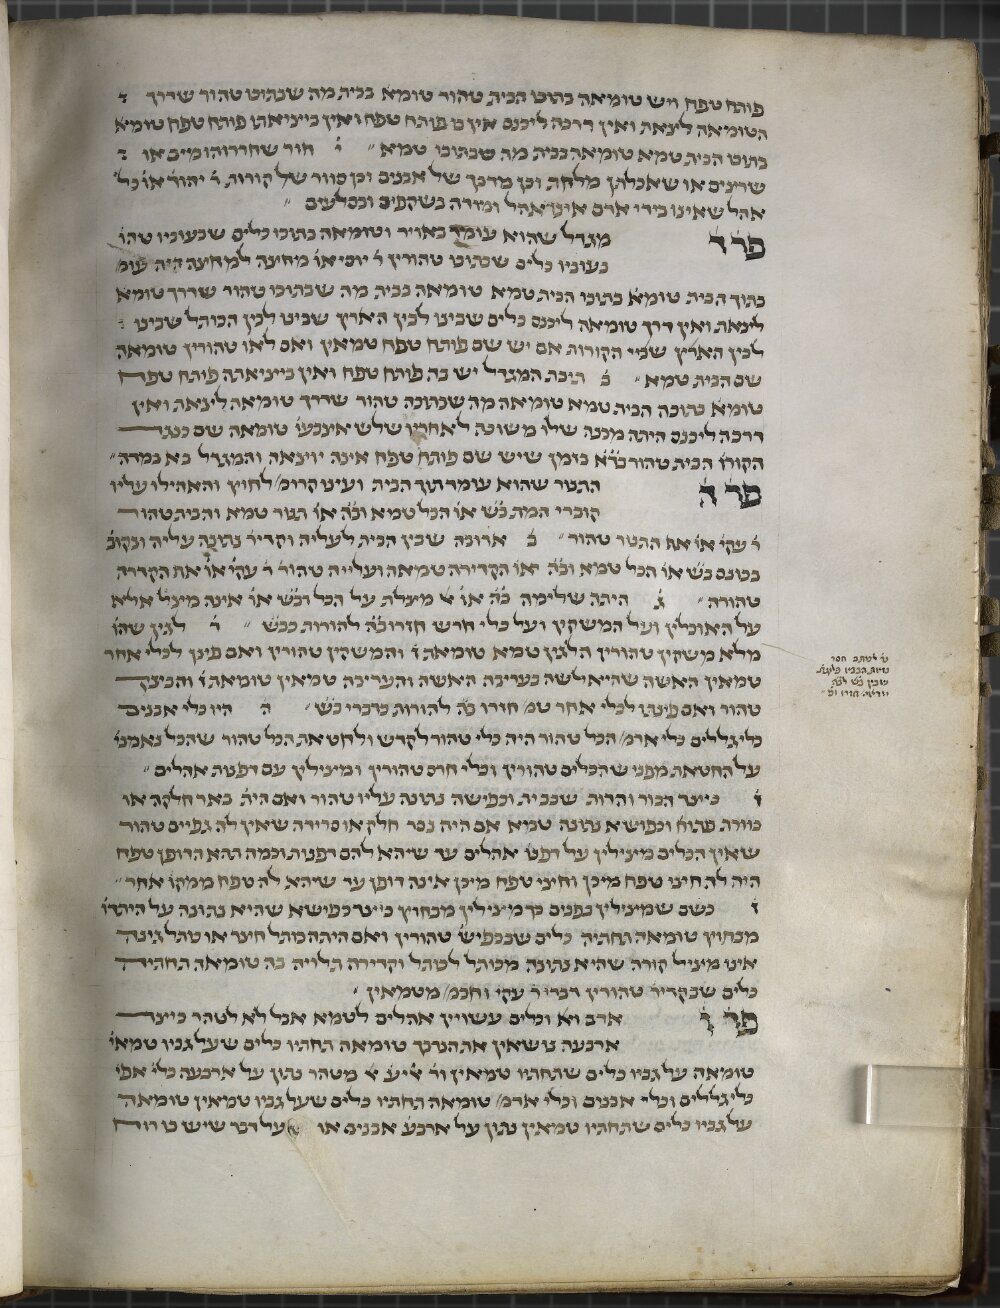 פותח טפח ויש טומאה בתוכו הבית טהור טומא׳ בבית מה שבתוכו טהור שדרך
הטומאה לצאת ואין דרכה ליכנס אין בו פותח טפח ואין ביציאתו פותח טפח טומא׳
בתוכו הבית טמא טומאה בבית מה שבתוכו טמא ״ ז׳ חור שחררוהו מים או
שרצים או שאכלתו מלחת וכן מדבך של אבנים וכן סוור של קורות ר׳ יהוד׳ או׳ כל
אהל שאינו בידי אדם אינו אהל ומודה בשקפים ובסלעים ״
פר׳ ד׳ מגדל שהוא עומד באויר וטומאה בתוכו כלים שבעוביו טהו׳
בעוביו כלים שבתוכו טהורין ר׳ יוסי או׳ מחצה למחצה היה עומ׳
בתוך הבית טומא׳ בתוכו הבית טמא טומאה בבית מה שבתוכו טהור שדרך טומא׳
לצאת ואין דרך טומאה ליכנס כלים שבינו לבין הארץ שבינו לבין הכותל שבינו
לבין הארץ שמי הקורות אם יש שם פותח טפח טמאין ואם לאו טהורין טומאה
שם הבית טמא ״ ב׳ תיבת המגדל יש בה פותח טפח ואין ביציאתה פותח טפח
טומא׳ בתוכה הבית טמא טומאה מה שבתוכה טהור שדרך טומאה לצאת ואין
דרכה ליכנס היתה מכנה שלו משוכה לאחריו שלש אצבעו׳ טומאה שם כנגד
הקורו׳ הבית טהור בד״א בזמן שיש שם פותח טפח אינה יוצאה והמגדל בא במדה ״
פר׳ ה׳ התנור שהוא עומד תוך הבית ועינו קרומ׳ לחוץ והאהילו עליו
קוברי המת ב״ש או׳ הכל טמא וב״ה או׳ תנור טמא והבית טהור
ר׳ עקי׳ או׳ את התנור טהור ״ ב׳ ארובה שבין הבית לעליה וקדיר׳ נתונה עליה ונקוב׳
בכונס ב״ש או׳ הכל טמא וב״ה או׳ הקדירה טמאה ועלייה טהור׳ ר׳ עקי׳ או׳ אף הקדרה
טהורה ״ ג׳ היתה שלימה ב״ה או׳ מיצלת על הכל וב״ש או׳ אינה מיצל׳ אלא
על האוכלין ועל המשקין ועל כלי חרש חזרו ב״ה להורות כב״ש ״ ד׳ לגין שהו׳
מלא משקין טהורין הלגין טמא טומאת ז׳ והמשקין טהורין ואם פינן לכלי אחר
טמאין האשה שהיא לשה בעריבה האשה והעריבה טמאין טומאת ז׳ והבצק
טהור ואם פינתו לכלי אחר טמ׳ חזרו ב״ה להורות כדברי ב״ש ״ ה׳ היו כלי אבנים
כלי גללים כלי אדמ׳ הכל טהור היה כלי טהור לקדש ולחטאת הכל טהור שהכל נאמני׳
על החטאת מפני שהכלים טהורין וכלי חרס טהורין ומצילין עם דפנות אהלים ״
ו׳ כיצד הבור והדות שבבית וכפישה נתונה עליו טהור ואם הית׳ באר חלקה או
כוורת פחות׳ וכפישא נתונה טמא אם היה נסר חלק או סרידה שאין לה גפיים טהור
שאין הכלים מצילין על דפנו׳ אהלים עד שיהא להם דפנות וכמה תהא הדופן טפח
היה לה חצי טפח מיכן וחיצי טפח מיכן אינה דופן עד שיהא לה טפח ממקו׳ אחד ״
ז׳ כשם שמצילין בפנים כך מצילין מבחוץ כיצד כפישא שהיא נתונה על היתדו׳
מבחוץ טומאה תחתיה כלים שבכפיש׳ טהורין ואם היתה כותל חצר או כותל גינה
אינו מציל קורה שהיא נתונה מכותל לכותל וקדירה תלויה בה טומאה תחתיה
כלים שבקדיר׳ טהורין דברי ר׳ עקי׳ וחכמ׳ מטמאין ״
פר׳ ו׳ אדם וא׳ וכלים עשויין אהלים לטמא אבל לא לטהר כיצד
ארבעה נושאין את הנדבך טומאה תחתיו כלים שעל גביו טמאי׳
טומאה על גביו כלים שתחתיו טמאין ור׳ מטהר נתון על ארבעה כלי׳ אפי׳
כלי גללים וכלי אבנים וכלי אדמ׳ טומאה תחתיו כלים שעל גביו טמאין טומאה
על גביו כלים שתחתיו טמאין נתון על ארבע אבנים או על דבר שיש בו רוח